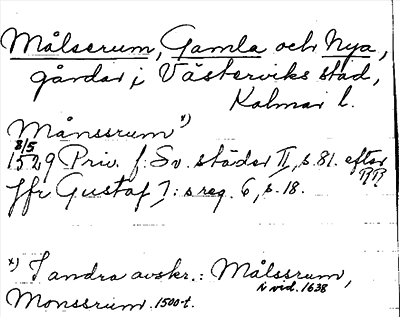 Målserum, Gamla och Nya,
gårdar i Västerviks stad,
Kalmar l.
Månssrum x)
8/5
1529 Priv. f. Sv. städer II, s. 81. efter
RR.
Jfr Gustaf I:s reg. 6, s. 18.
x) I andra avskr.: Målssrum,
vid. 1638
Monssrum. 1500-t.